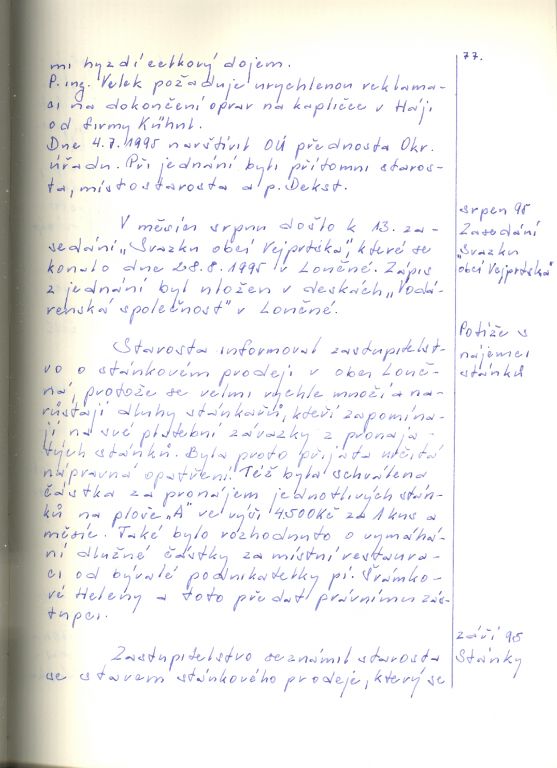 77.
mi hyzdí celkový dojem.
P. ing. Velek požaduje urychlenou reklama-
ci na dokončení oprav na kapličce v Háji
od firmy Kühnl.
Dne 4.7.1995 navštívil OÚ přednosta Okr.
úřadu. Při jednání byli přítomni staros-
ta, místostarosta a p. Dekst.
srpen 95
Zasedání
„Svazku
obcí Vejprtska"
V měsíci srpnu došlo k 13. za-
sedání „Svazku obcí Vejprtska", které se
konalo dne 28.8.1995 v Loučné. Zápis
z jednání byl uložen v deskách „Vodá-
renská společnost" v Loučné.
Potíže s
nájemci
stánků
Starosta informoval zastupitelst-
vo o stánkovém prodeji v obci Louč-
ná, protože se velmi rychle množí a na-
růstají dluhy stánkařů, kteří zapomína-
jí na své platební závazky z pronaja-
tých stánků. Byla proto přijata určitá
nápravná opatření. Též byla schválena
částka za pronájem jednotlivých stán-
ků na ploše „A" ve výši 4500Kč za 1 kus a
měsíc. Také bylo rozhodnuto o vymáhá-
ní dlužné částky za místní restaura-
ci od bývalé podnikatelky pí. Šrámko-
vé Heleny a toto předat právnímu zás-
tupci.
září 95
Stánky
Zastupitelstvo seznámil starosta
se stavem stánkového prodeje, který se